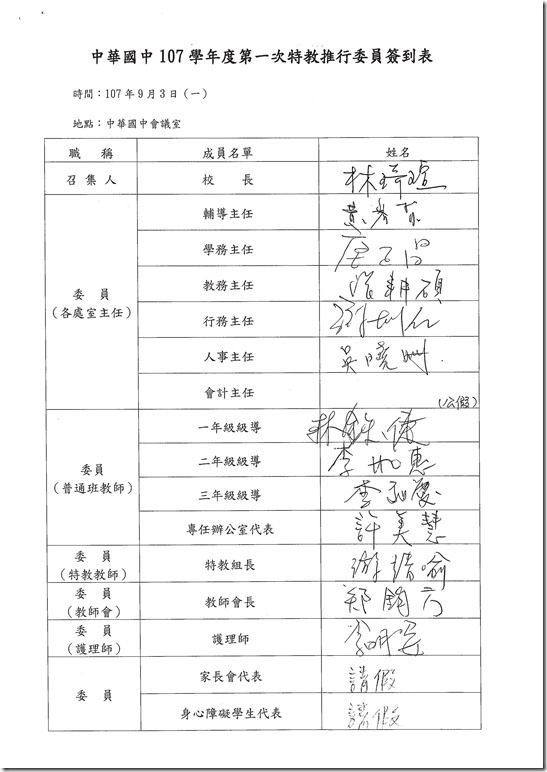 中華國中107學年度第一次特教推行委員簽到表
時間：107年9月3日（一）
地點：中華國中會議室
職 稱 成員名單 姓名
召集人 校 長 林琦瑄
輔導主任
學務主任
委 員
（各處室主任）
教務主任 耕碩
行務主任
人事主任 吳曉
會計主任 （公假）
一年級級導 林
委員
（普通班教師）
二年級級導 李如惠
三年級級導 李 慶
專任辦公室代表 許美慧
委 員
（特教教師）
特教組長 游 喻
委 員
（教師會）
教師會長 郑
委 員
（護理師）
護理師 李
委 員
家長會代表 請假
身心障礙學生代表 請假